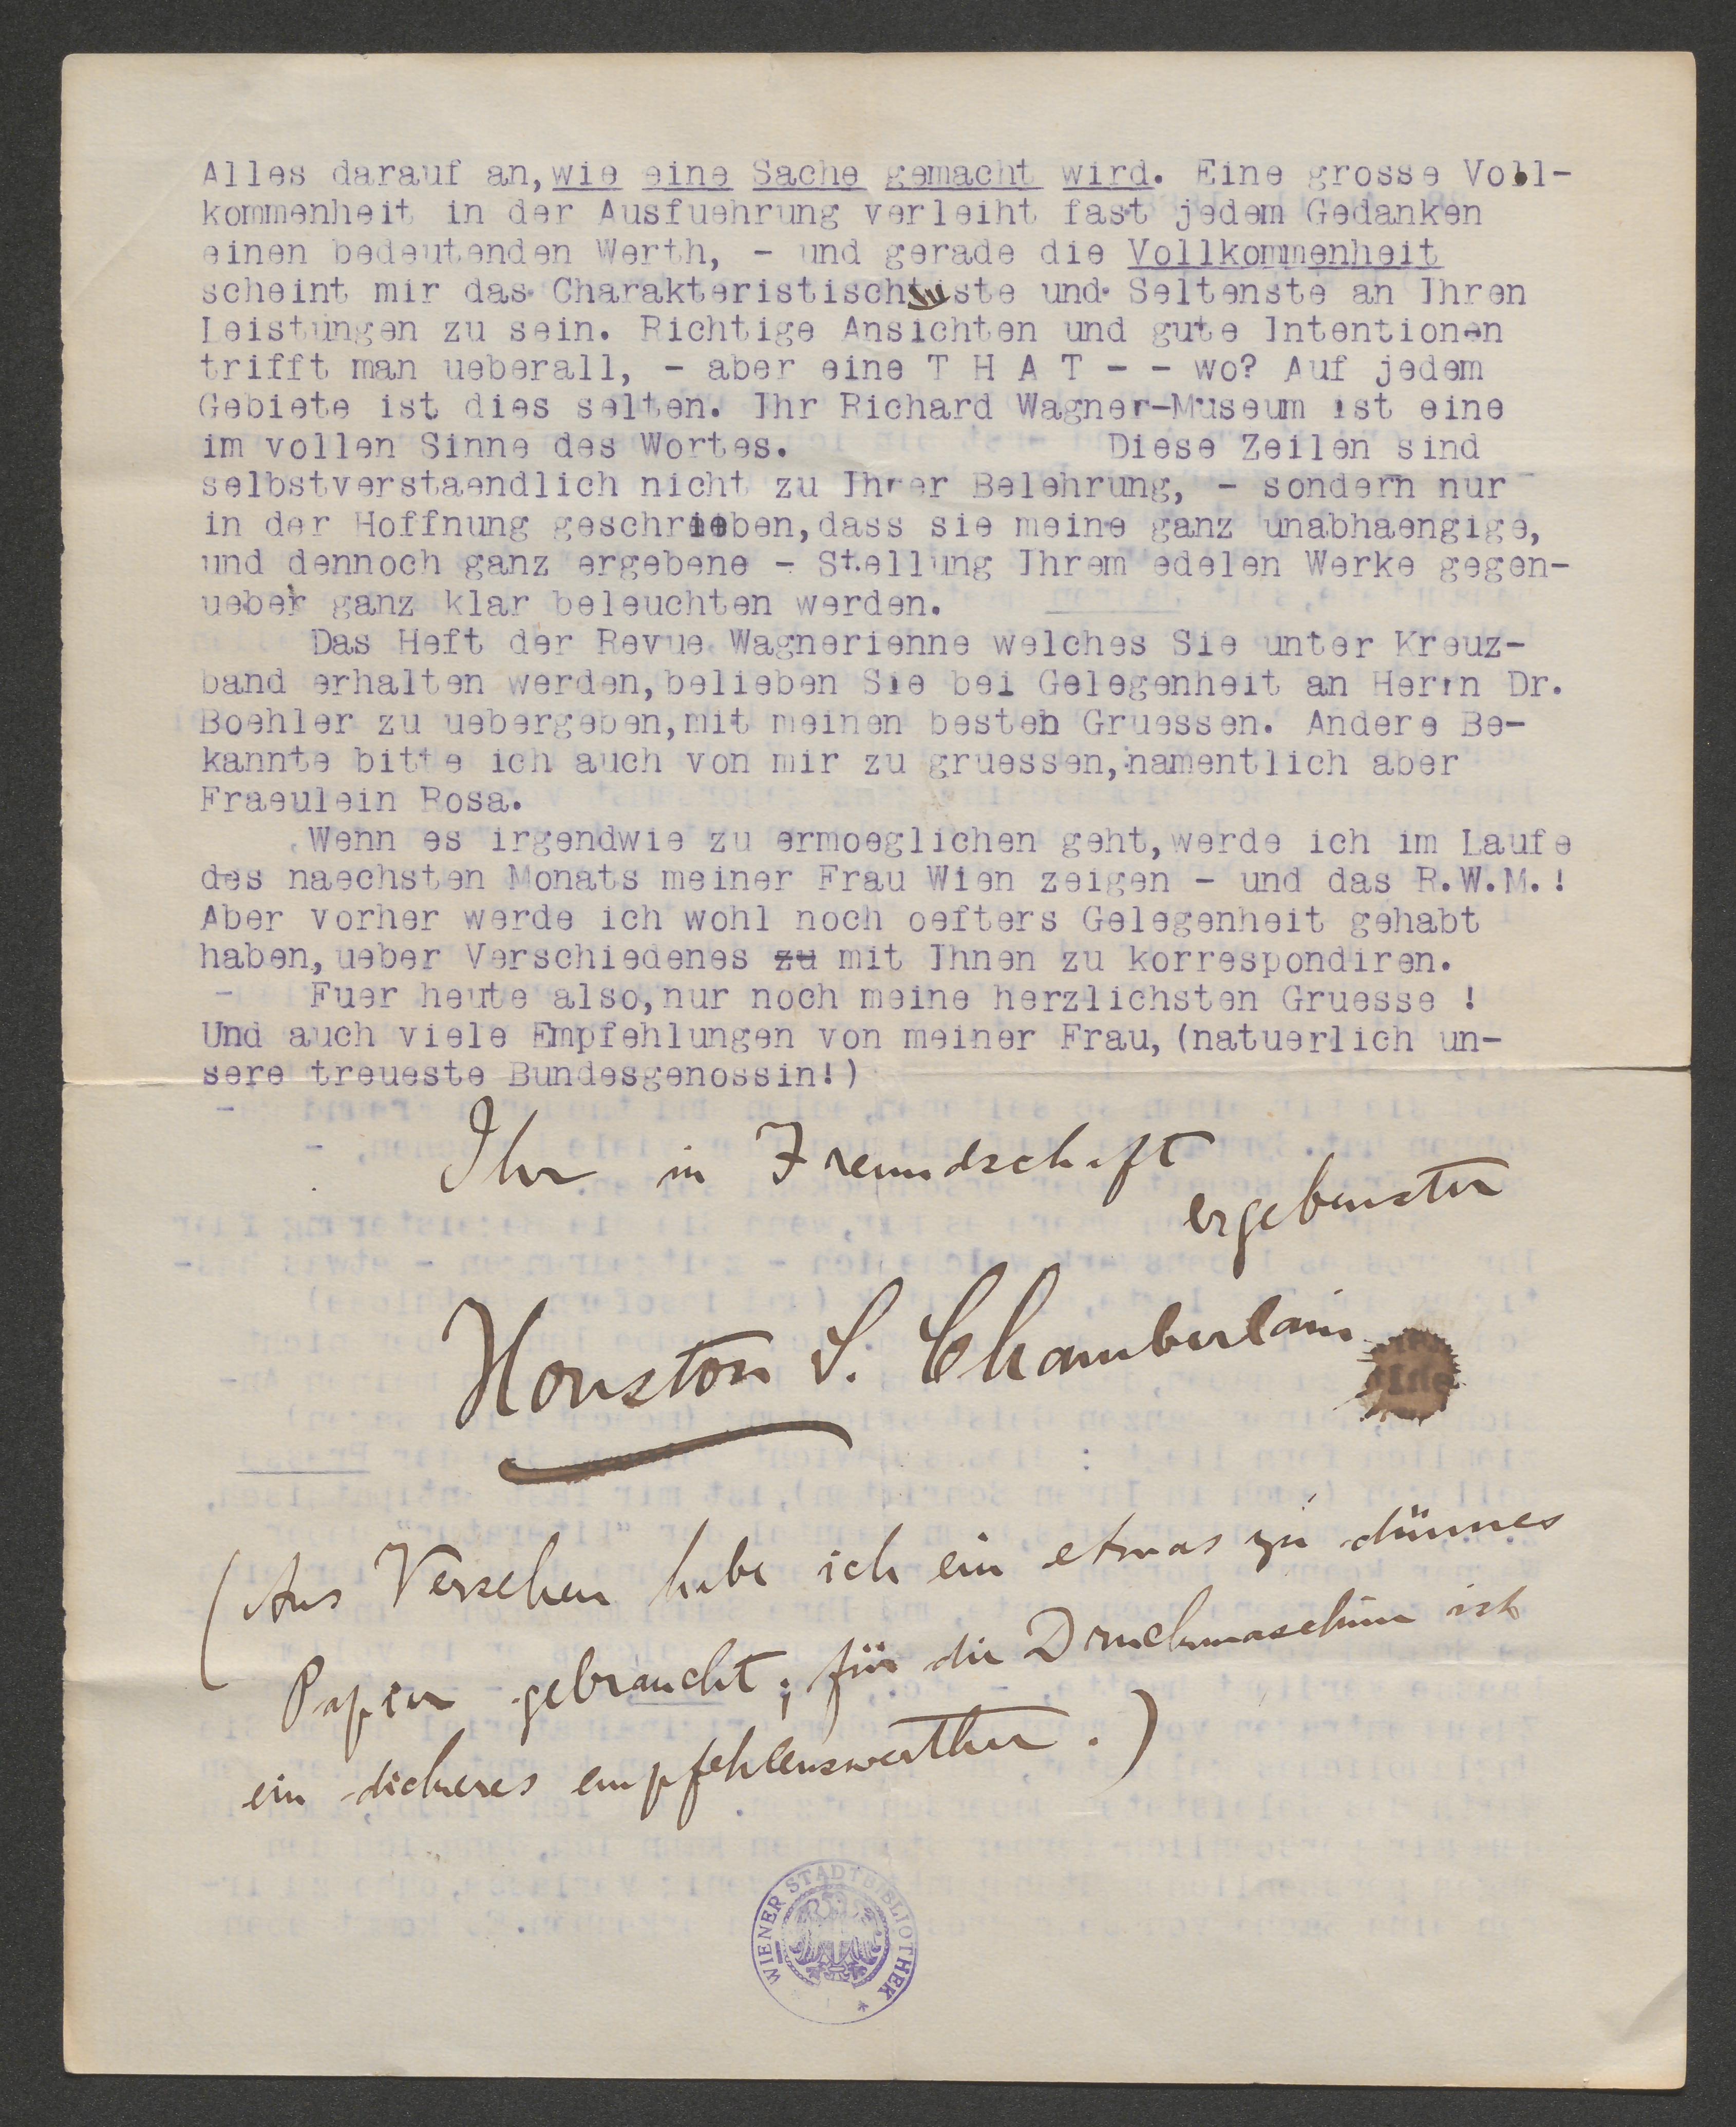 Alles darauf an, wie eine Sache gemacht wird. Eine grosse Voll-
kommenheit in der Ausfuehrung verleiht fast jedem Gedanken
einen bedeutenden Werth, - und gerade die Vollkommenheit
scheint mir das Charakteristischste und Seltenste an Ihren
Leistungen zu sein. Richtige Ansichten und gute Intentionen
trifft man ueberall, - aber eine T H A T - - wo? Auf jedem
Gebiete ist dies selten. Ihr Richard Wagner-Museum ist eine
im vollen Sinne des Wortes. Diese Zeilen sind
selbstverstaendlich nicht zu Ihrer Belehrung, - sondern nur
in der Hoffnung geschrieben, dass sie meine ganz unabhaengige,
und dennoch ganz ergebene - Stellung Ihrem edelen Werke gegen-
ueber ganz klar beleuchten werden.
Das Heft der Revue Wagnerienne welches Sie unter Kreuz-
band erhalten werden, belieben Sie bei Gelegenheit an Herrn Dr.
Boehler zu uebergeben, mit meinen besten Gruessen. Andere Be-
kannte bitte ich auch von mir zu gruessen, namentlich aber
Fraeulein Rosa.
Wenn es irgendwie zu ermoeglichen geht, werde ich im Laufe
des naechsten Monats meiner Frau Wien zeigen - und das R.W.M.!
Aber vorher werde ich wohl noch oefters Gelegenheit gehabt
haben, ueber Verschiedenes zu mit Ihnen zu korrespondiren.
- Fuer heute also, nur noch meine herzlichsten Gruesse !
Und auch viele Empfehlungen von meiner Frau, (natuerlich un-
sere treueste Bundesgenossin!)
Ihr in Freundschaft
ergebenster
Houston S. Chamberlain
(Aus Versehen habe ich ein etwas zu dünnes
Papier gebraucht; für die Druckmaschine ist
ein dickeres empfehlenswerther.)
WIENER STADTBIBLIOTHEK